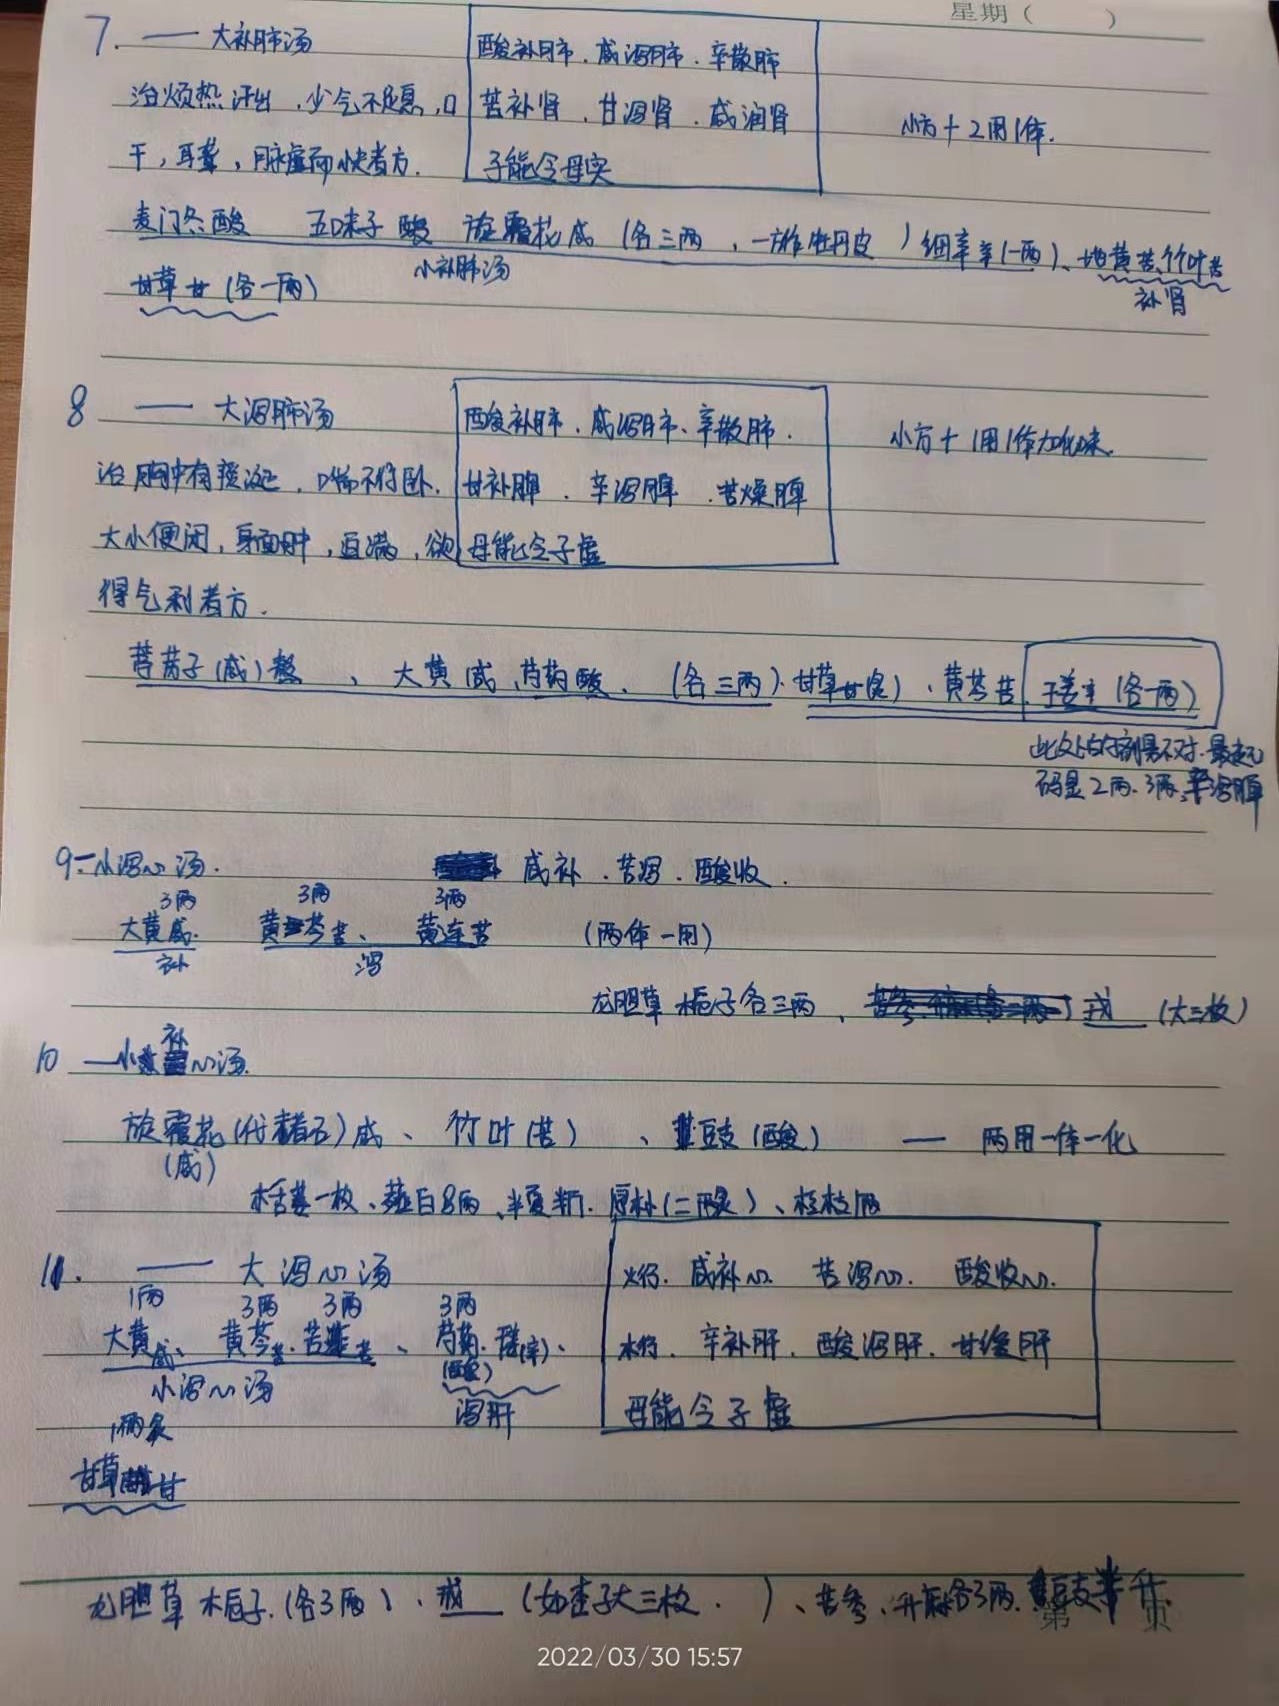 星期（ ）
7. — 大补肺汤
酸补肺．咸泻肺．辛散肺
治烦热汗出，少气不足息，口
苦补肾．甘泻肾．咸润肾
小方＋2用1体．
干，耳聋，脉虚而快者方．
子能令母实
麦门冬酸 五味子酸 旋覆花咸（各三两，一方作牡丹皮）细辛辛（一两）、地黄苦、竹叶苦
小补肺汤
甘草甘（各一两）
补肾
8 — 大泻肺汤
酸补肺．咸泻肺、辛散肺．
小方＋1用1体加化味．
治胸中有痰涎，喘不得卧．
甘补脾．辛泻脾．苦燥脾
大小便闭，身面肿，苴满，欲
母能令子虚
得气利者方．
葶苈子（咸）熬、大黄咸、芍药酸、（各三两）．甘草甘（炙）、黄芩苦、干姜辛（各一两）
此处的剂量不对．最起
码是2两．3两，辛泻脾
9. 一小泻心汤． 咸补．苦泻．酸收．
3两 3两 3两
大黄咸． 黄芩苦、 黄连苦 （两体一用）
补 泻
龙胆草 栀子各三两、 戎 （大三枚）
10 — 小补心汤．
旋覆花（代赭石）咸、竹叶（苦）、豆豉（酸） — 两用一体一化
（咸）
栝蒌一枚、薤白8两、半夏半斤．厚朴（二两炙）、桂枝1两
11. — 大泻心汤
火行．咸补心．苦泻心．酸收心．
1两 3两 3两 3两
大黄咸、黄芩苦．黄连苦、芍药．（辛）、
（酸）
木行．辛补肝．酸泻肝．甘缓肝
小泻心汤
泻肝
母能令子虚
1两炙
甘草甘
龙胆草 栀子．（各3两）．戎 （如杏子大三枚．）、苦参、升麻各3两．豆豉半升．
第 页
2022/03/30 15:57